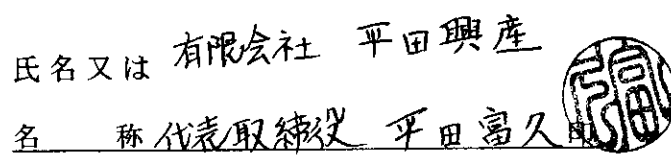 氏名又は 有限会社 平田興産
名称 代表取締役 平田富久 印